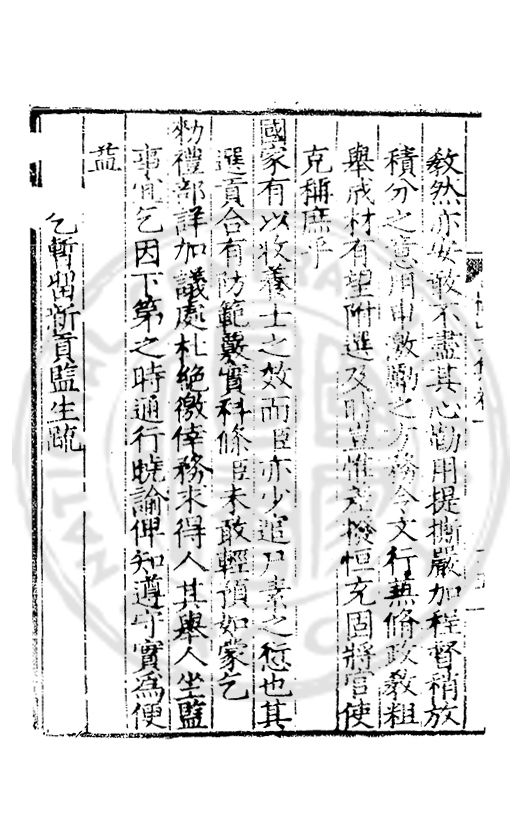 教然亦安敢不盡其心勤用提撕嚴加程督稍放
積分之意用申激勸之方務令文行兼脩政教粗
舉成材有望附選及時豈惟差撥恒充固將官使
克稱庶乎
國家有以收養士之效而臣亦少逭尸素之愆也其
選貢合有防範覈實科條臣未敢輕預如蒙乞
勑禮部詳加議處杜絕徼倖務求得人其舉人坐監
事宜乞因下第之時通行曉諭俾知遵守實為便
益
乞暫留新貢監生疏